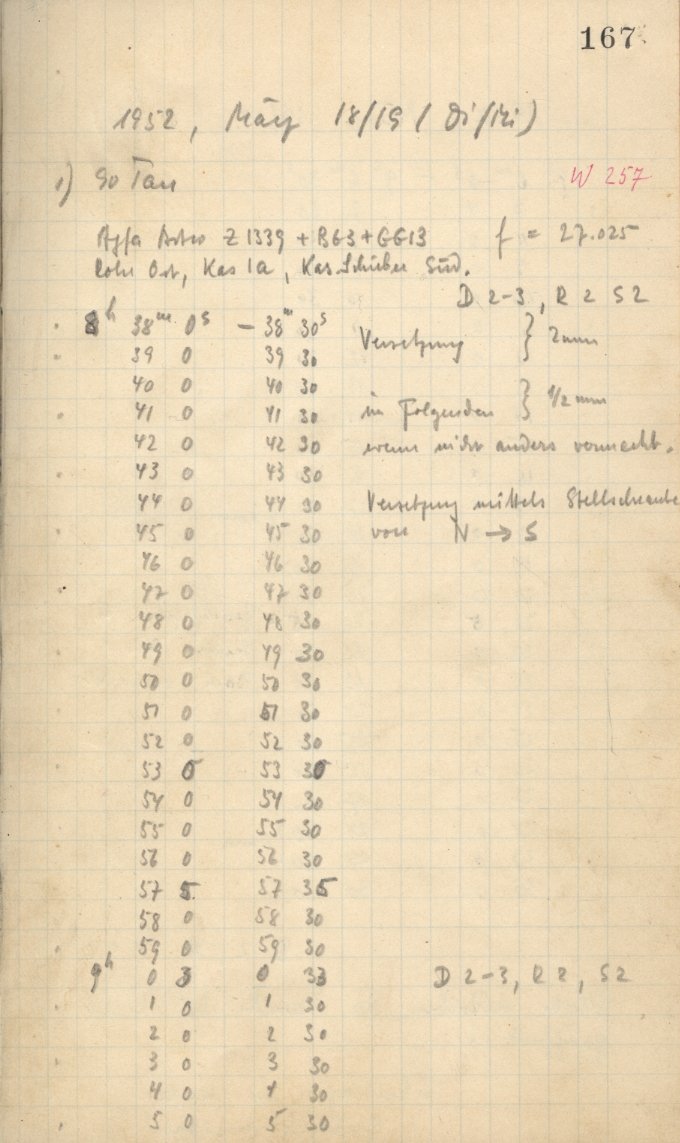 167
1952, März 18/19 (Di/Mi)
1) 90 Tau
W 257
Agfa Astro Z 1339 + BG3+GG13 f = 27.025
Rohr Ost, Kas 1a, Kas.Schieber Süd.
D 2-3, R 2 S 2
8h 38m 0s - 38m 30s Versetzung } 2mm
39 0 39 30
40 0 40 30
41 0 41 30 im Folgenden } 1/2 mm
42 0 42 30 wenn nicht anders vermerkt.
43 0 43 30
44 0 44 30 Versetzung mittels Stellschraube
45 0 45 30 von N → S
46 0 46 30
47 0 47 30
48 0 48 30
49 0 49 30
50 0 50 30
51 0 51 30
52 0 52 30
53 0 53 30
54 0 54 30
55 0 55 30
56 0 56 30
57 5 57 35
58 0 58 30
59 0 59 30
9h 0 3 0 33 D 2-3, R 2, S 2
1 0 1 30
2 0 2 30
3 0 3 30
4 0 4 30
5 0 5 30